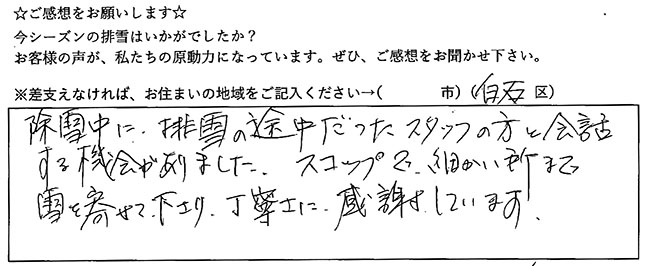 ☆ご感想をお願いします☆
今シーズンの排雪はいかがでしたか?
お客様の声が、私たちの原動力になっています。ぜひ、ご感想をお聞かせ下さい。
※差支えなければ、お住まいの地域をご記入ください→(　　　市)(白石 区)
除雪中に、排雪の途中だったスタッフの方と会話
する機会がありました。スコップで、細かい所まで
雪を寄せて下さり、丁寧さに、感謝しています。